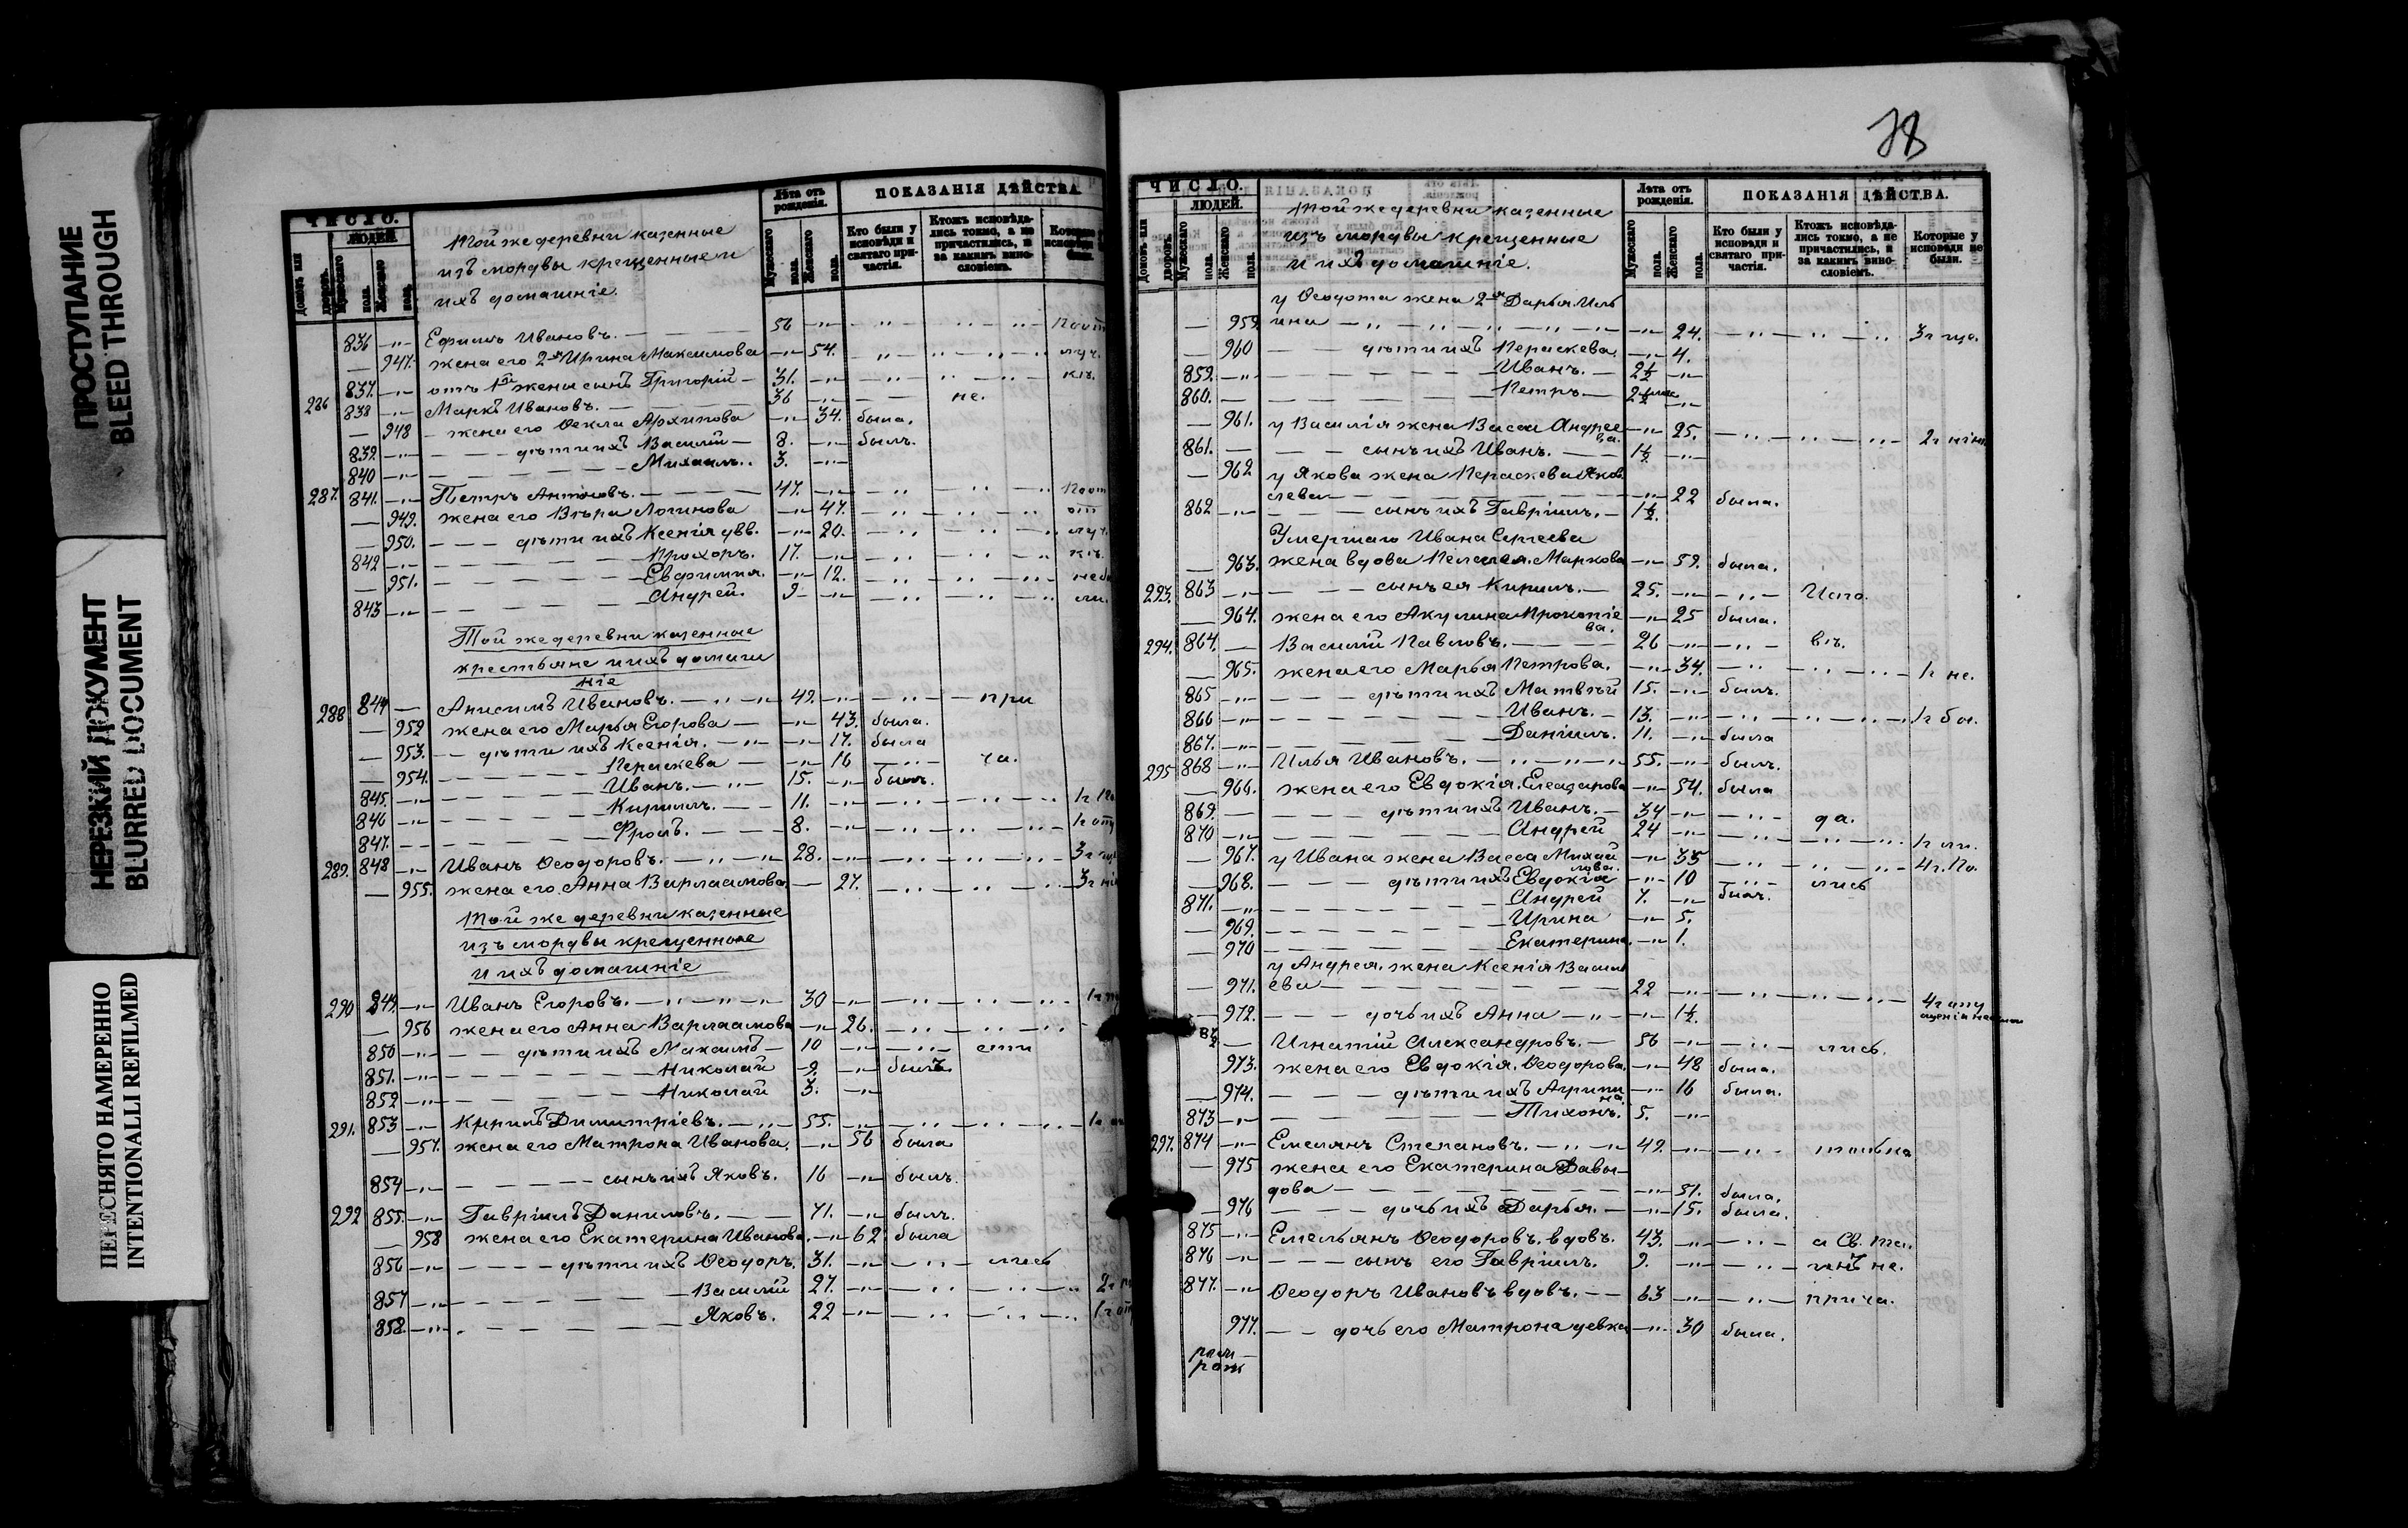 ПРОСТУПАНИЕ
BLEED THROUGH
НЕРЕЗКИЙ ДОКУМЕНТ
BLURRED DOCUMENT
ПЕРЕСНЯТО НАМЕРЕННО
INTENTIONALLI REFILMED
ЧИСЛО.
ЛЮДЕЙ
Домовъ или дворовъ.
Мужескаго пола.
Женскаго пола.
Той же деревни казенные
изъ мордвы крещенные и
ихъ домашніе.
Лѣта отъ рожденія.
Мужескаго пола.
Женскаго пола.
ПОКАЗАНІЯ ДѢЙСТВА.
Кто были у исповѣди и святаго причастія.
Ктожъ исповѣдались токмо, а не причастились, и за какимъ винословіемъ.
836 Ефимъ Ивановъ. 56
947. жена его 2-я Ирина Максимова 54.
837. отъ 1й жены сынъ Григорій 31.
286 838 Маркъ Ивановъ. 36 не.
948 жена его Ѳекла Архипова 34. была.
839. дѣти ихъ Василій 8. былъ.
840 Михаилъ. 3.
287. 841. Петръ Антоновъ. 47.
949. жена его Вѣра Логинова 47.
950. дѣти ихъ Ксенія двв. 20.
842 Прохоръ. 17.
951. Евфимия. 12.
843 Андрей. 9
Той же деревни казенные
крестьяне и ихъ домаш
ніе
288 844 Анисимъ Ивановъ. 49. при
952 жена его Марья Егорова 43. была.
953. дѣти ихъ Ксенія. 17. была
954. Параскева 16 ча.
845. Иванъ. 15. былъ.
846 Кириллъ. 11.
847. Фролъ. 8.
289. 848 Иванъ Ѳеодоровъ. 28.
955. жена его Анна Варлаамова. 27.
Той же деревни казенные
изъ мордвы крещенные
и ихъ домашніе
290 849. Иванъ Егоровъ. 30
956 жена его Анна Варлаамова 26.
850 дѣти ихъ Максимъ 10 сти
851. Николай 9. былъ
852 Николай 3.
291. 853 Кирилъ Димитріевъ. 55.
957. жена его Матрона Иванова. 56 была
854 сынъ ихъ Яковъ. 16 былъ.
292 855. Гавріилъ Даниловъ. 71. былъ.
958 жена его Екатерина Иванова. 62. была
856 дѣти ихъ Ѳеодоръ. 31. лись
857 Василій 27.
858. Яковъ. 22
78
ЧИСЛО.
ЛЮДЕЙ.
Домовъ или дворовъ.
Мужескаго пола.
Женскаго пола.
Той же деревни казенные
изъ мордвы крещенные
и ихъ домашніе.
Лѣта отъ рожденія.
Мужескаго пола.
Женскаго пола.
ПОКАЗАНІЯ ДѢЙСТВА.
Кто были у исповѣди и святаго причастія.
Ктожъ исповѣдались токмо, а не причастились, и за какимъ винословіемъ.
Которые у исповѣди не были.
у Ѳеодота жена 2-я Дарья Иль
959. ина 24. 3 г ще.
960 дѣти ихъ Параскева. 4.
859. Иванъ. 2½
860. Петръ
961. у Василія жена Васса Андрее
ва. 25. 2 г нію
861. сынъ ихъ Иванъ. 1½
962 у Якова жена Параскева Яков
лева 22 была.
862 сынъ ихъ Гавріилъ. 1½.
Умершаго Ивана Сергеева
963. жена вдова Пелагея Маркова 59. была.
293. 863 сынъ ея Кирилъ. 25. Испо.
964. жена его Акулина Прокопіе
ва. 25 была.
294. 864. Василій Павловъ. 26 вѣ.
965. жена его Марья Петрова. 34. 1 г не.
865 дѣти ихъ Матвѣй 15. былъ.
866 Иванъ. 13. 1 г бы.
867. Даніилъ. 11. была
295 868 Илья Ивановъ. 55. былъ.
966. жена его Евдокія Елеазарова 54. была
869. дѣти ихъ Иванъ. 34 да.
870 Андрей 24 1 г ли.
967. у Ивана жена Васса Михай
лова. 35 4 г. По.
968. дѣти ихъ Евдокія 10 лись
871. Андрей 7. былъ.
969. Ирина 5.
970 Екатерина. 1.
у Андрея жена Ксенія Васил
971. ева 22 4 г опу
972. дочь ихъ Анна 1½.
872 Игнатій Александровъ. 56 лись.
973. жена его Евдокія Ѳеодорова. 48 была.
974. дѣти ихъ Агрипи
на. 16 была.
873 Тихонъ. 5.
297. 874 Емелянъ Степановъ. 49. только
975 жена его Екатерина Давы
дова 51. была.
976 дочь ихъ Дарья. 15. была.
875 Емельянъ Ѳеодоровъ вдовъ. 43. а Св. та.
876 сынъ его Гавріилъ. 9. инъ не.
877. Ѳеодоръ Ивановъ вдовъ. 63 прича.
977. дочь его Матрона девка 30 была.